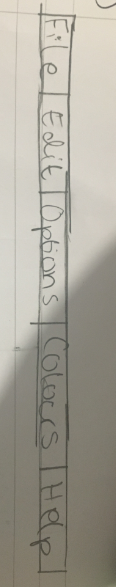 File | Edit | Options | Colours | Help |